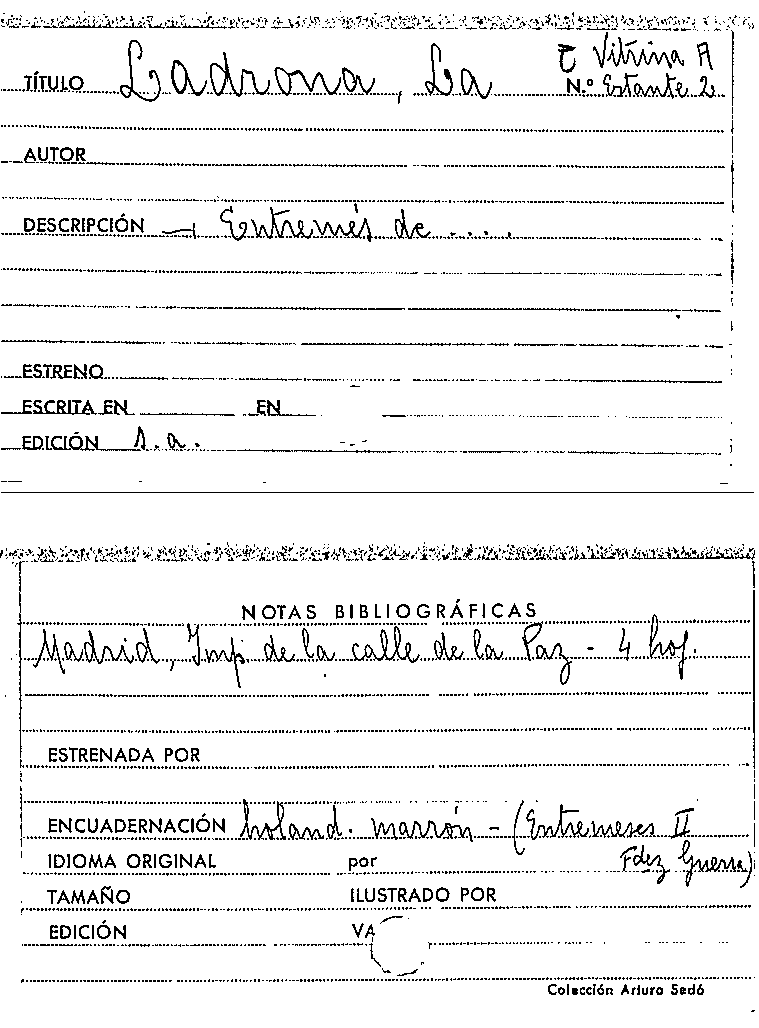 TÍTULO Ladrona, La
Vitrina A
N.º Estante 2
AUTOR
DESCRIPCIÓN — Entremés de ....
ESTRENO
ESCRITA EN EN
EDICIÓN s.a.
NOTAS BIBLIOGRÁFICAS
Madrid, Imp de la calle de la Paz - 4 hoj.
ESTRENADA POR
ENCUADERNACIÓN holand. marrón - (Entremeses II
Fdez Guerra)
IDIOMA ORIGINAL por
TAMAÑO ILUSTRADO POR
EDICIÓN VA
Colección Arturo Sedó